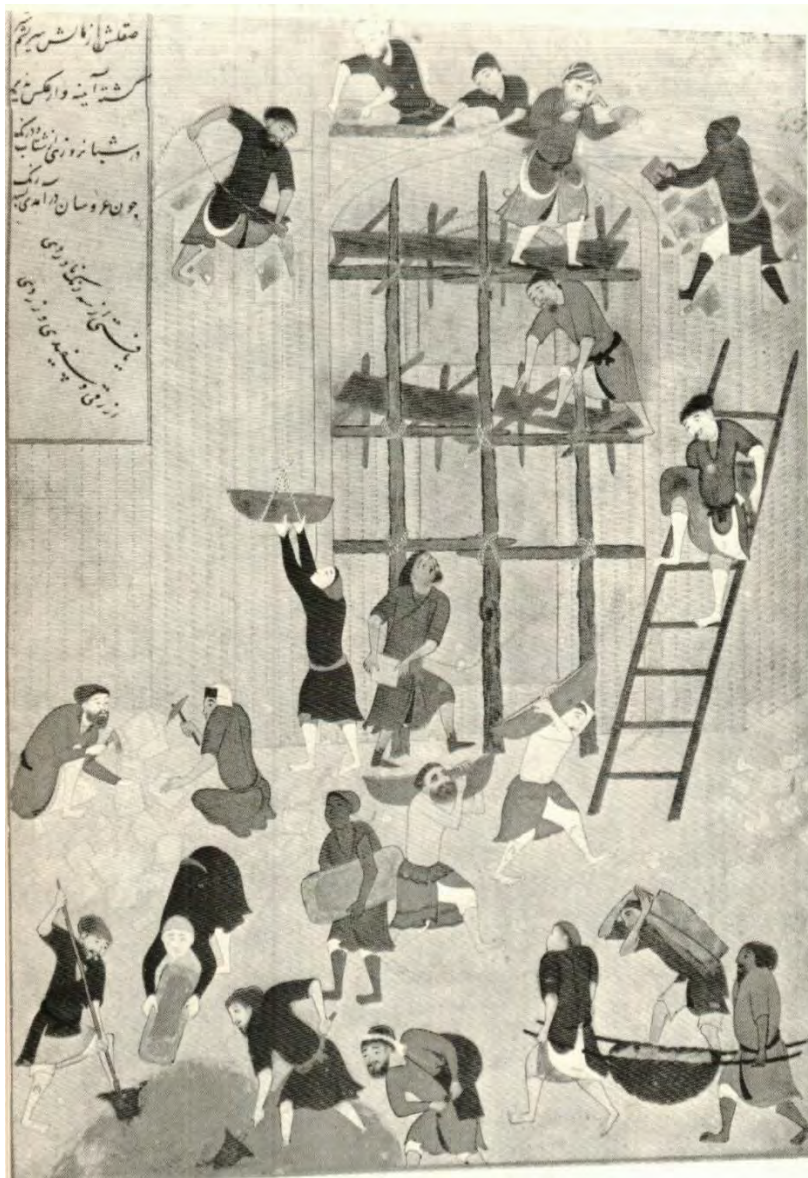 صقلش از مالش سریشم
گشته آینه وار عکس پذیر
در شبانروزی از شتاب و درنگ
چون عروسان در آمدی بسه رنگ
یافتی از سه رنگ ناوردی
ازرقی و سپیدی و زردی